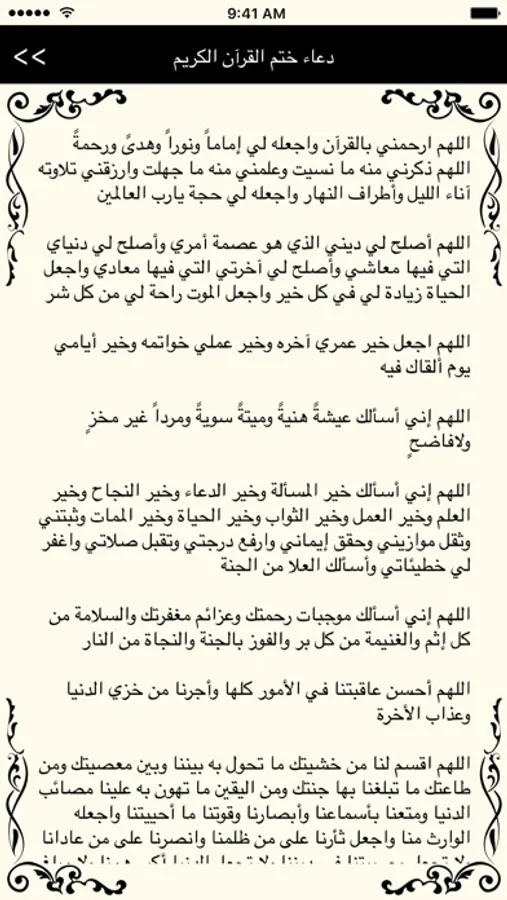 9:41 AM
<<
دعاء ختم القرآن الكريم
اللهم ارحمني بالقرآن واجعله لي إماماً ونوراً وهدىً ورحمةً
اللهم ذكرني منه ما نسيت وعلمني منه ما جهلت وارزقني تلاوته
آناء الليل وأطراف النهار واجعله لي حجة يارب العالمين
اللهم أصلح لي ديني الذي هو عصمة أمري وأصلح لي دنياي
التي فيها معاشي وأصلح لي آخرتي التي فيها معادي واجعل
الحياة زيادة لي في كل خير واجعل الموت راحة لي من كل شر
اللهم اجعل خير عمري آخره وخير عملي خواتمه وخير أيامي
يوم ألقاك فيه
اللهم إني أسألك عيشةً هنيةً وميتةً سويةً ومرداً غير مخزٍ
ولافاضحٍ
اللهم إني أسألك خير المسألة وخير الدعاء وخير النجاح وخير
العلم وخير العمل وخير الثواب وخير الحياة وخير الممات وثبتني
وثقل موازيني وحقق إيماني وارفع درجتي وتقبل صلاتي واغفر
لي خطيئاتي وأسألك العلا من الجنة
اللهم إني أسألك موجبات رحمتك وعزائم مغفرتك والسلامة من
كل إثم والغنيمة من كل بر والفوز بالجنة والنجاة من النار
اللهم أحسن عاقبتنا في الأمور كلها وأجرنا من خزي الدنيا
وعذاب الأخرة
اللهم اقسم لنا من خشيتك ما تحول به بيننا وبين معصيتك ومن
طاعتك ما تبلغنا بها جنتك ومن اليقين ما تهون به علينا مصائب
الدنيا ومتعنا بأسماعنا وأبصارنا وقوتنا ما أحييتنا واجعله
الوارث منا واجعل ثأرنا على من ظلمنا وانصرنا على من عادانا